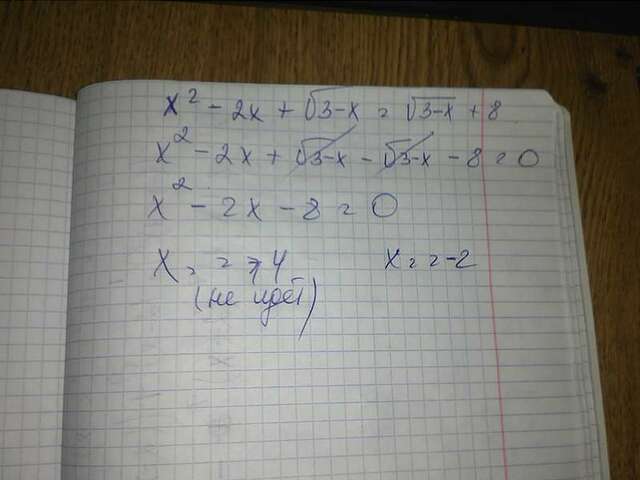 x² - 2x + √3-x = √3-x + 8
x² - 2x + √3-x - √3-x - 8 = 0
x² - 2x - 8 = 0
x = 4 x = -2
(не идёт)